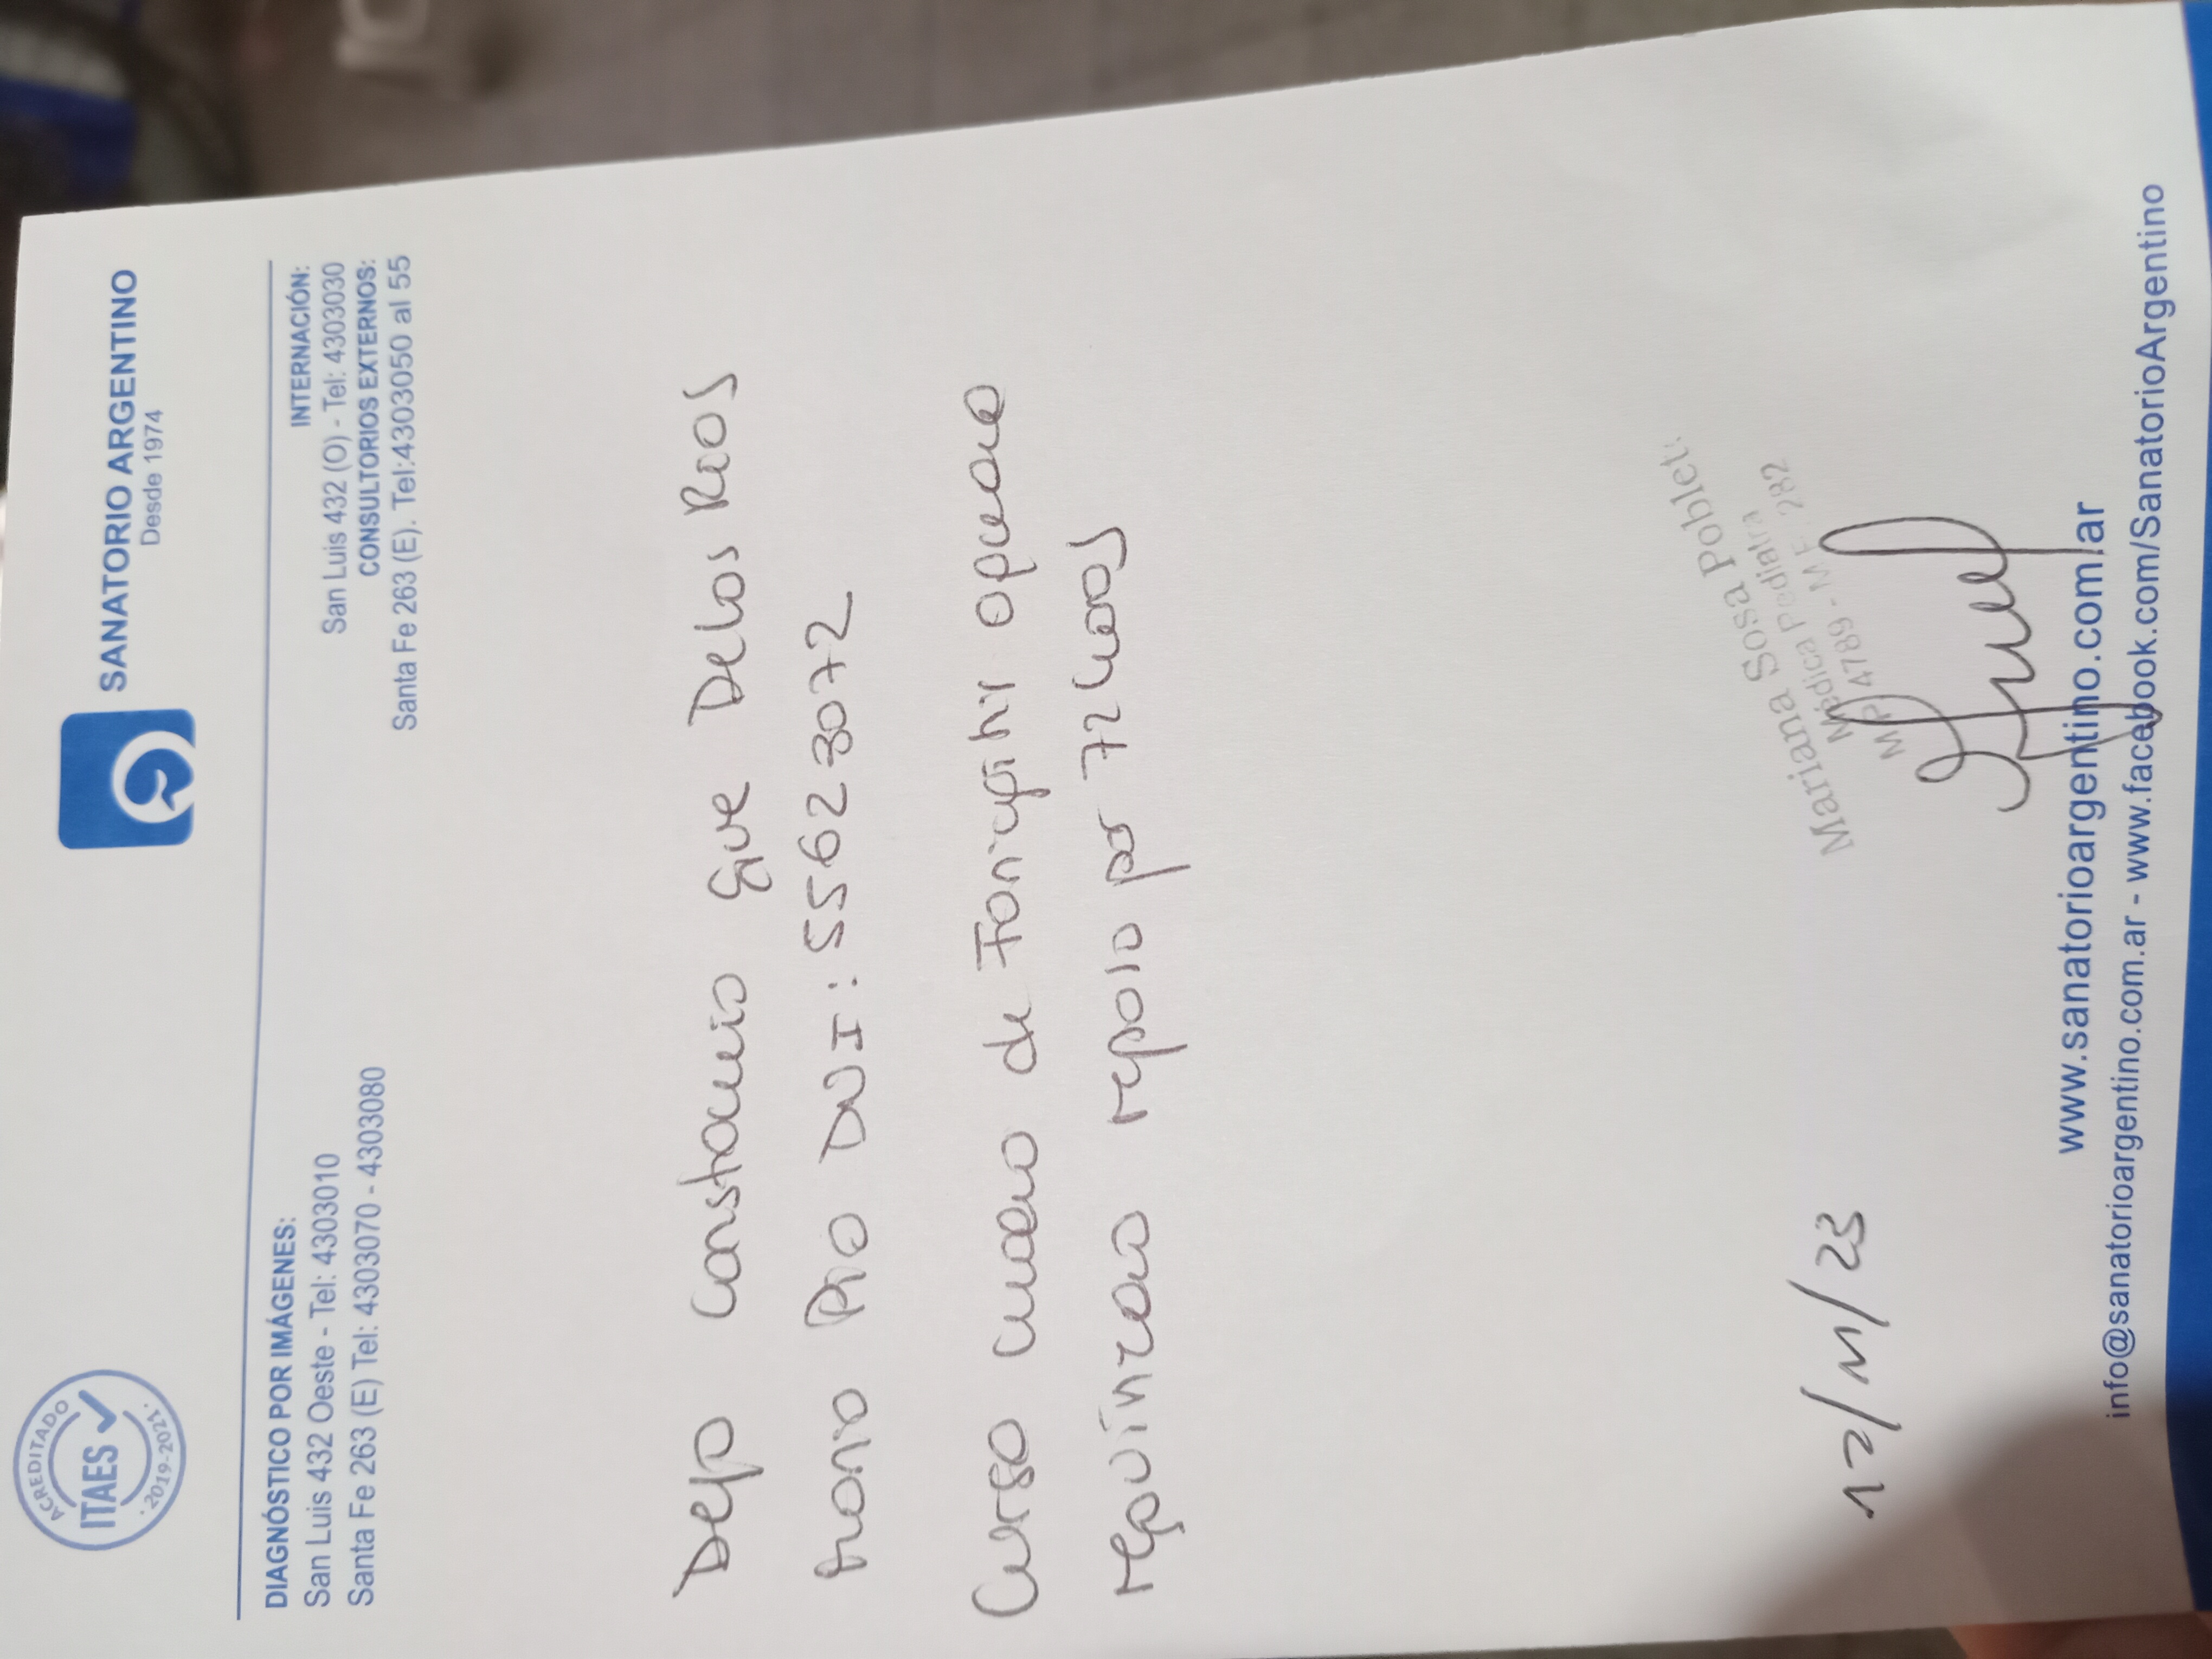 ACREDITADO
ITAES
· 2019-2021 ·
SANATORIO ARGENTINO
Desde 1974
DIAGNÓSTICO POR IMÁGENES:
San Luis 432 Oeste - Tel: 4303010
Santa Fe 263 (E) Tel: 4303070 - 4303080
INTERNACIÓN:
San Luis 432 (O) - Tel: 4303030
CONSULTORIOS EXTERNOS:
Santa Fe 263 (E). Tel:4303050 al 55
Dejo constancia que Delos Rios
Pio DNI: 55623072
Curso cuadro de
requiriendo reposo por 72 horas
12/11/23
Mariana Sosa Poblet
Médica Pediatra
MP 4789 - M.E. 282
www.sanatorioargentino.com.ar
info@sanatorioargentino.com.ar - www.facebook.com/SanatorioArgentino